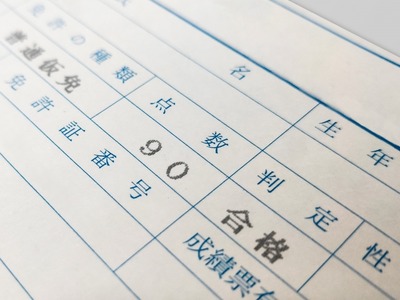 名
生年
免許の種類
点数
判定
性
普通仮免
90
合格
免許証番号
成績票有